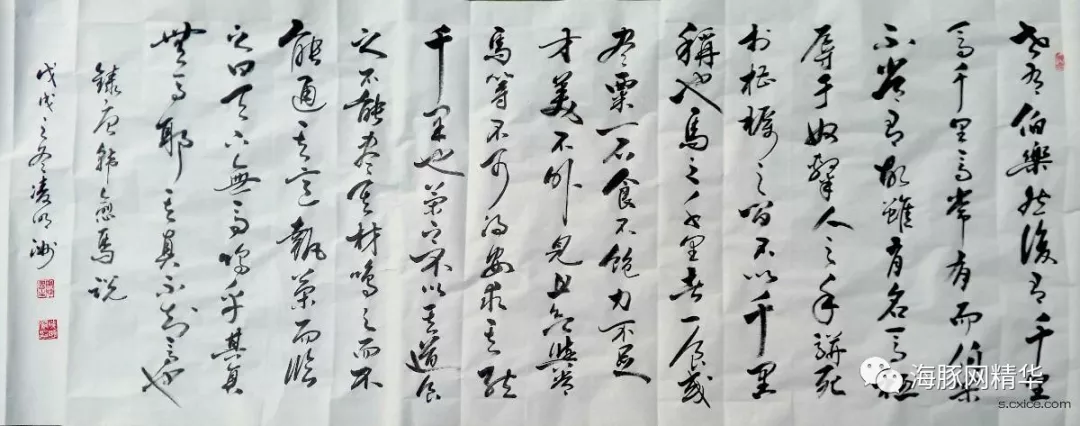 世有伯樂然後有千里
馬千里馬常有而伯樂
不常有故雖有名馬祇
辱于奴隸人之手駢死
於槽櫪之間不以千里
稱也馬之千里者一食或
尽粟一石食不飽力不足
才美不外見且欲與常
馬等不可得安求其能
千里也策之不以其道食
之不能尽其材鳴之而不
能通其意執策而臨
之曰天下無馬嗚乎其真
無馬耶其真不知馬也
錄唐韓愈馬說
戊戌之冬凌明洲
海豚网精华
s.cxice.com